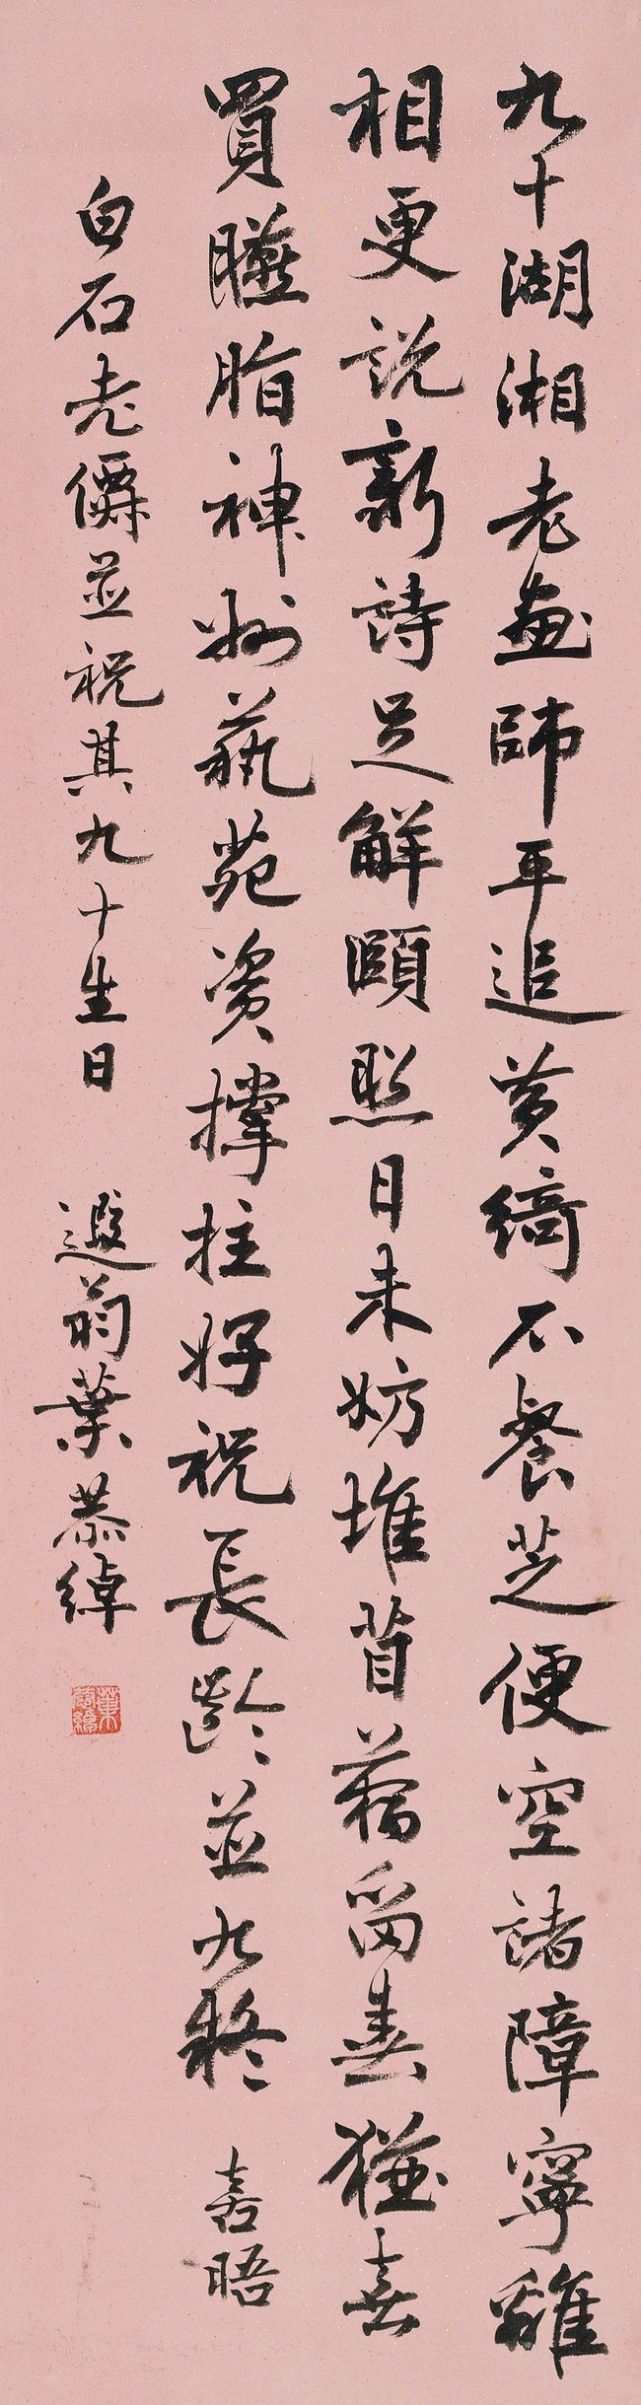 九十湖湘老畫師平追黃綺不餐芝便空諸障寧離
相更說新詩足解頤照日未妨堆苜蓿留春猶喜
買臙脂神州藝苑資撐柱好祝長齡並九疑 喜晤
白石老僊並祝其九十生日 遐翁葉恭綽
葉恭綽